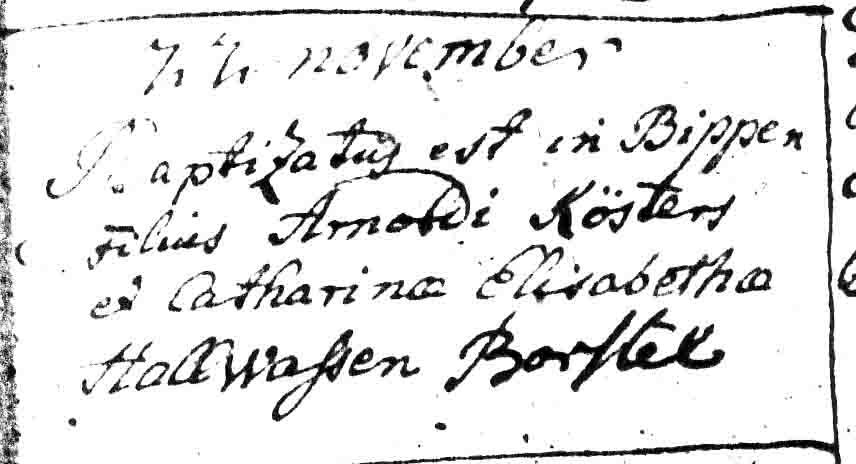 22 november
Baptizatus est in Bippen
filius Arnoldi Kösters
et Catharinæ Elisabethæ
Hallwassen Borstel